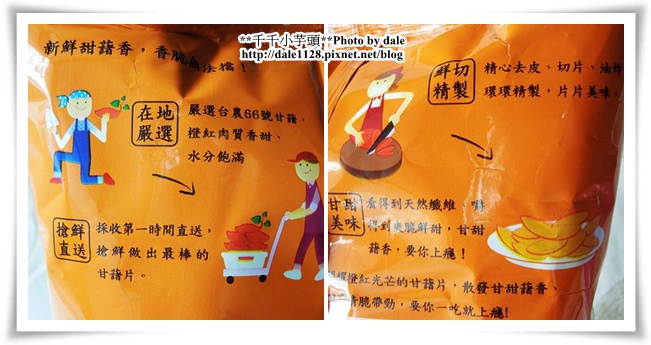 **千千小芋頭**Photo by dale
http://dale1128.pixnet.net/blog
新鮮甜藷香，香脆無法擋！
在地
嚴選
嚴選台農66號甘藷，
橙紅肉質香甜、
水分飽滿
搶鮮
直送
採收第一時間直送，
搶鮮做出最棒的
甘藷片。
鮮切
精製
精心去皮、切片、油炸
環環精製，片片美味。
甘甜
美味
看得到天然纖維、嚐
得到爽脆鮮甜，甘甜
藷香，要你上癮！
橙紅光芒的甘藷片，散發甘甜藷香、
脆帶勁，要你一吃就上癮！